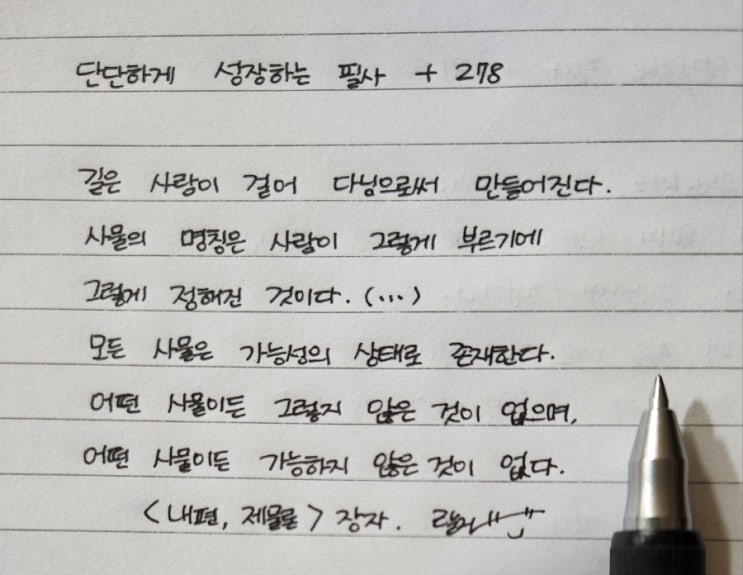 단단하게 성장하는 필사 + 278
길은 사람이 걸어 다님으로써 만들어진다.
사물의 명칭은 사람이 그렇게 부르기에
그렇게 정해진 것이다. (...)
모든 사물은 가능성의 상태로 존재한다.
어떤 사물이든 그렇지 않은 것이 없으며,
어떤 사물이든 가능하지 않은 것이 없다.
<내편, 제물론> 장자.